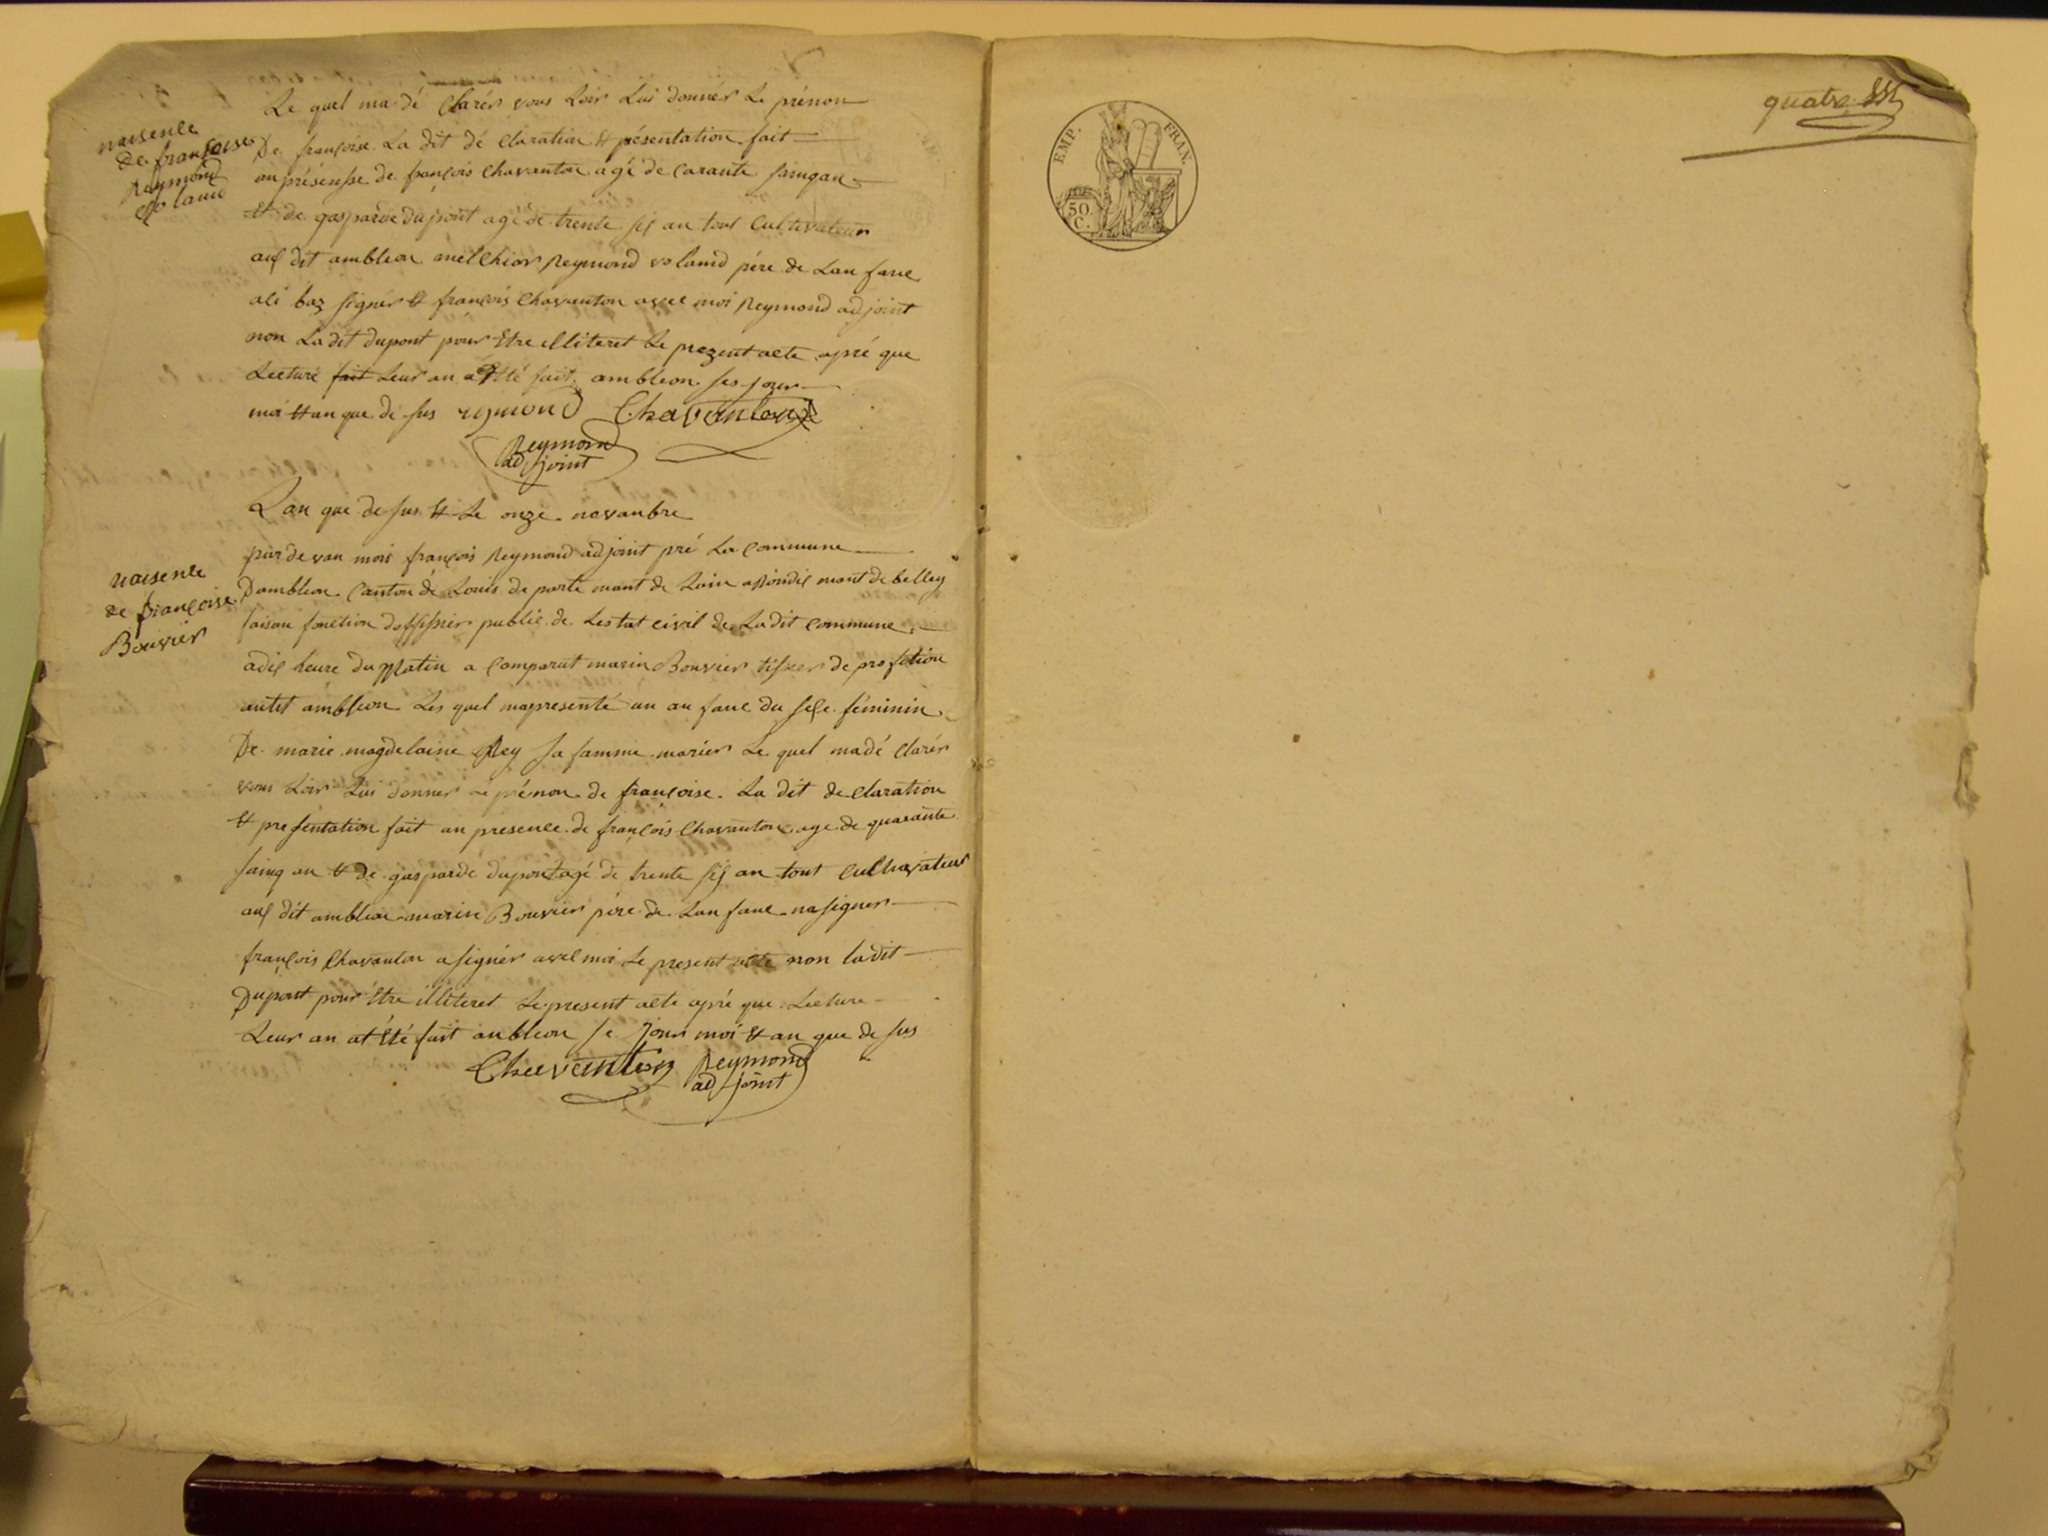 Le quel ma dé clarér vous loir lui donnér le prénon
naisence
de françoise
Reymond
voland
De françoise La dit dé claration et présentation fait
an présensse de françois Chavanton agé de carante sainqan
et de gasparde dupont agé de trente sis an tout Cultivateur
aus dit ambleon melchior Reymond voland pére de Lan fanc
ali baz signér et françois Chavanton avec moi Reymond adjoint
non La dit dupont pour etre illiteret Le prezent acte apré que
Lecture fait Leur an a etté fait ambleon ses jour
moi et an que de sus reymond Chavanton
Reymond
adjoint
Lan que de sus et Le onze novanbre
naisence
de françoise
Bouvier
par de van mois françois Reymond adjoint pré La commune
Dambleon Canton de Louis de parte mant de Lain arondis mant de belley
faisan fonction doffissier public de Lestat civil de La dit commune
adis heure du Matin a comparut marin Bouvier tisser de profetion
autit ambleon Les quel mapresenté un an fanc du sese féminin
De marie magdelaine Rey sa famme marier Le quel madé clarér
vous Loir Lui donner Le prénon de françoise La dit de claration
et presentation fait an presence de françois Chavanton age de quarante
sainq an et de gasparde dupont agé de trente sis an tout cultivateur
aus dit ambleon marin Bouvier pére de Lan fanc na signer
françois Chavanton a signér avec moi Le present acte non ladit
Dupont pour Etre illiteret Le present acte apré que Lecture
Leur an at été fait anbleon se jour moi et an que de sus
Chavanton Reymond
adjoint
EMP. FRAN.
50
C.
quatre